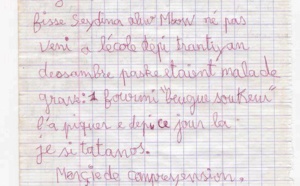 fisse Seydina aliw Mbow né pas
veni a lécole depi trantyan
deosambre paske etaient malade
grave: 1 fourmi "beugue soukeur"
l'a piquer e depi ce jour la
je si tatanos.
Merçie de compreyension.